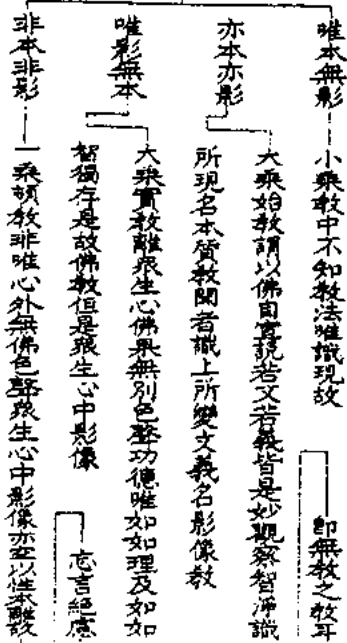 唯本無影
小乘教中不知教法唯識現故
即無教之教耳
亦本亦影
大乘始教謂以佛自宣說若文若義皆是妙觀察智淨識
所現名本質教聞者識上所變文義名影像教
唯影無本
大乘實教離眾生心佛果無別色聲功德唯如如理及如如
智獨存是故佛教但是眾生心中影像
忘言絕慮
非本非影
一乘頓教非唯心外無佛色聲眾生心中影像亦空以性本離故